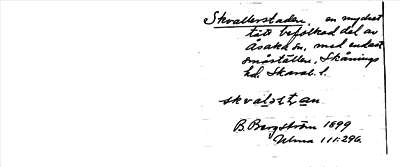 Skvallerstaden, en mycket
tätt befolkad del av
Åsaka sn, med endast
småställen, Skånings
hd. Skarab. l.
skvalǝstan
B. Bergström 1899
Ulma 111:296.